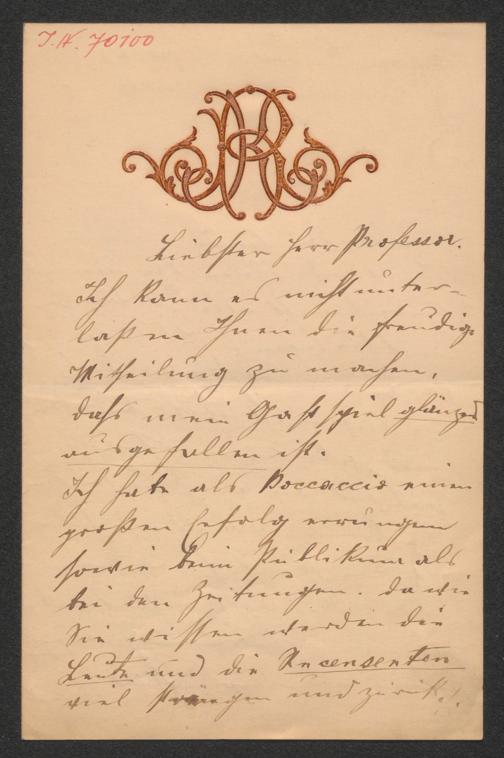 I.N. 70100
Liebster Herr Professor.
Ich kann es nicht unter-
laßen Ihnen die freudige
Mitheilung zu machen,
daſs mein Gastspiel glänzend
ausgefallen ist.
Ich habe als Boccaccio einen
großen Erfolg errungen
sowie beim Publikum als
bei den Zeitungen. da wie
Sie wissen werden die
Leute und die Recensenten
viel strenger sind